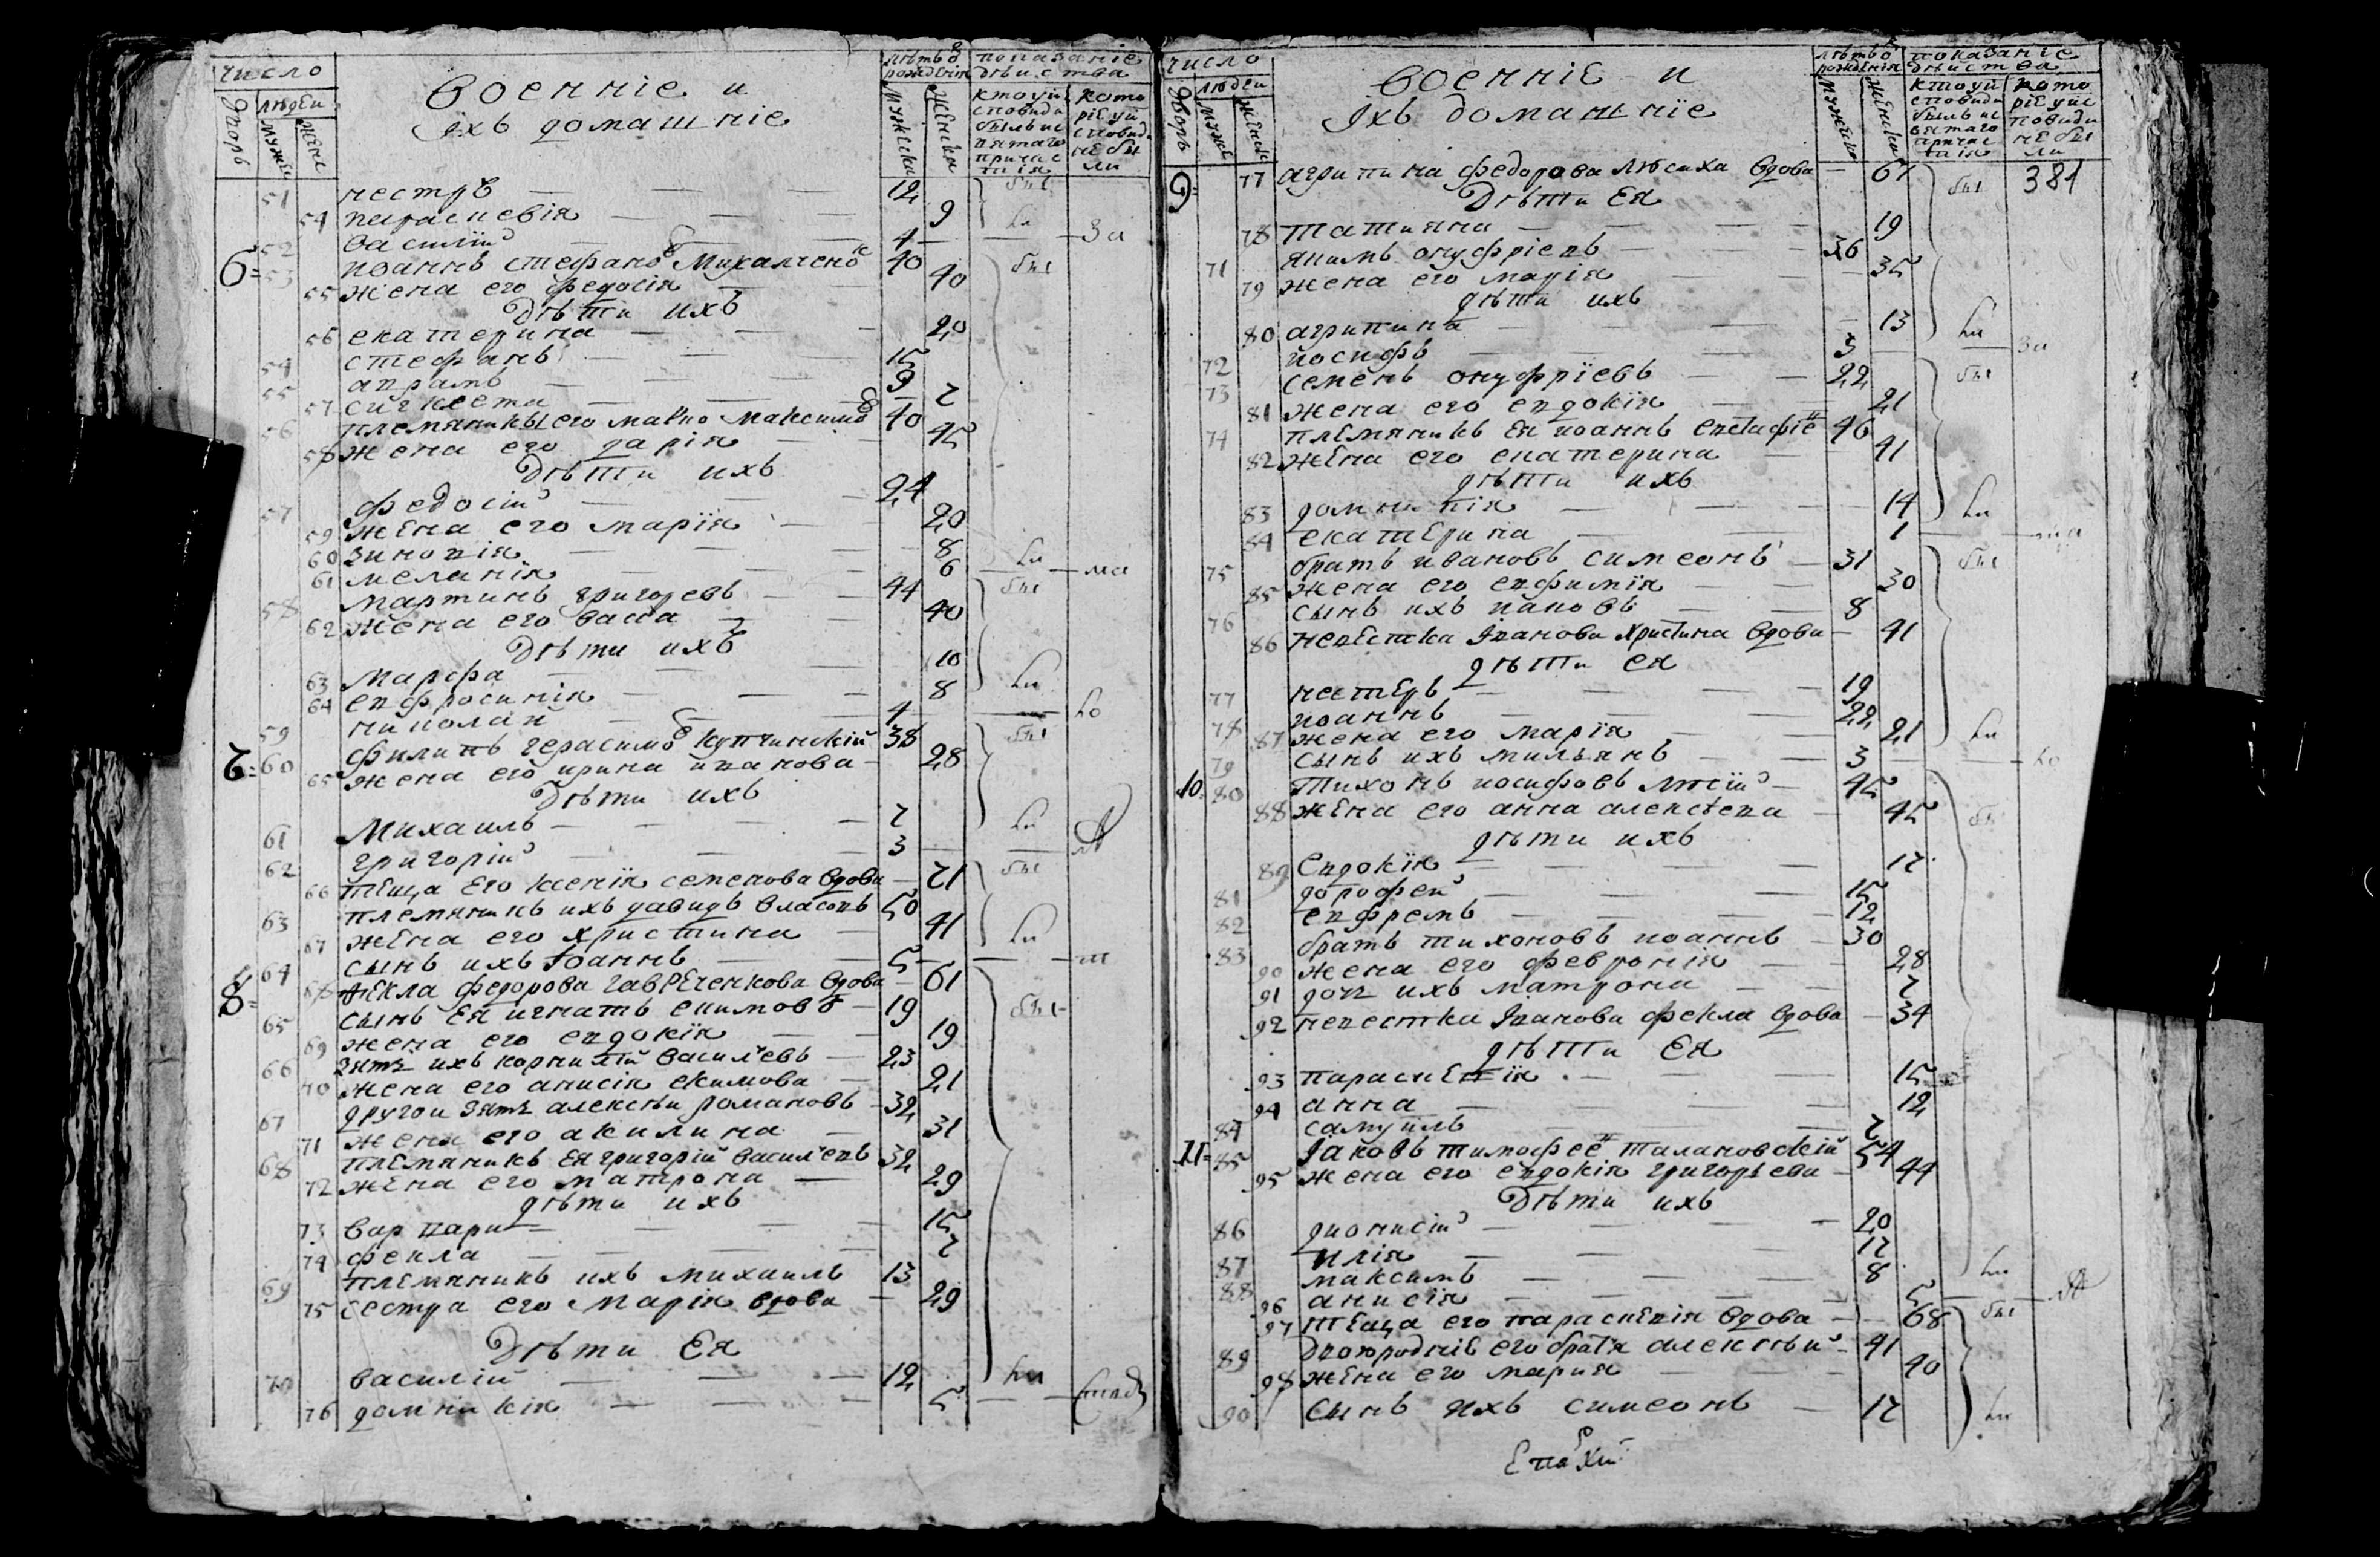 число
Дворъ
людей
мужеска
женс
военніе и
Ихъ домашніе
лѣтъ ѿ рожденія
мужеска
женска
показаніе дѣиства
кто у исповѣди былъ и святаго причастія
которіе у исповѣди не были
51 нестръ — 12 бы
54 параскевія — 9 ли
52 василій — 4 — за
6 53 иоаннъ стефановъ Михалченко 40 бы
55 жена его федосія — 40
Дѣти ихъ
56 екатерина — 20
54 стефанъ — 15
55 аврамъ — 9
57 сигклети — 7
56 племяникъ его марко максимовъ 40
58 жена его дарія — 45
Дѣти ихъ
57 федосій — 24
59 жена его марїя — 20
60 зиновія — 8
61 меланія — 6 ли — ма
58 мартинъ григоревъ — 44 бы
62 жена его васса — 40
Дѣти ихъ
63 Марфа — 10
64 евфросинія — 8 ли
59 николай — 4 — ко
7 60 филипъ герасимовъ купчинскій 38 бы
65 жена его ирина иванова — 28
Дѣти ихъ
61 Михаилъ — 7 ли
62 григорій — 3
66 теща его ксенія семенова вдова — 71 бы
63 племяникъ ихъ давидъ власовъ 50
67 жена его христина — 41 ли
64 сынъ ихъ Іоаннъ — 5 — т
8 68 Фекла федорова гавреченкова вдова — 61
65 сынъ ея игнатъ екимовъ — 19 бы
69 жена его евдокія — 19
66 зять ихъ корнилій василевъ — 23
70 жена его анисія екимова — 21
67 другои зять алексѣи романовъ — 32
71 жена его акилина — 31
68 племяникъ ея григорій василевъ 32
72 жена его матрона — 29
дѣти ихъ
73 варвари — 15
74 фекла — 7
69 племяникъ ихъ михаилъ 13
75 сестра его марія вдова — 29
Дѣти Ея
70 василій — 12 ли
76 домникія — 5
число
Дворъ
людеи
мужс
женск
военніе и
Ихъ домашніе
лѣтъ ѿ рожденія
мужеска
женска
показаніе дѣиства
кто у исповѣди былъ и святаго причастія
которіе у исповѣди не были
9 77 агрипина федорова люсиха вдова — 61 бы 381
Дѣти Ея
78 татияна — 19
71 якимъ онуфріевъ — 36
79 жена его марія — 35
дѣти ихъ
80 агрипина — 13 ли
72 иосифъ — 3 — за
73 семенъ онуфрїевъ — 22 бы
81 жена его евдокія — 21
74 племяникъ ея иоаннъ евстафіе 46
82 жена его екатерина — 41
дѣти ихъ
83 домникія — 14 ли
84 екатерина — 1
75 братъ ивановъ симеонъ — 31 бы
85 жена его евфимїя — 30
76 сынъ ихъ иаковъ — 8
86 невестка Іванова христина вдова — 41
дѣти ея
77 нестеръ — 19
78 иоаннъ — 22
87 жена его марія — 21 ли
79 сынъ ихъ мильянъ — 3 — ко
10 80 тихонъ иосифовъ люсій — 45
88 жена его анна алексѣева — 45 бы
дѣти ихъ
89 Евдокїя — 17
81 дорофеи — 15
82 евфремъ — 12
83 братъ тихоновъ иоаннъ — 30
90 жена его феврония — 28
91 дочъ ихъ матрона — 7
92 невестка Іванова фекла вдова — 34
дѣти Ея
93 параскевія — 15
94 анна — 12
84 самуилъ — 7
11 85 Іаковъ тимофее талановскїй 54
95 жена его евдокія григорьева — 44
Дѣти ихъ
86 дионисій — 20
87 илія — 17
88 максимъ — 8 ли
96 анисія — 5
97 теща его параскевія вдова — 68 бы
89 двоюродніе его братя алексѣи — 41
98 жена его мария — 40
90 сынъ ихъ симеонъ — 17 ли